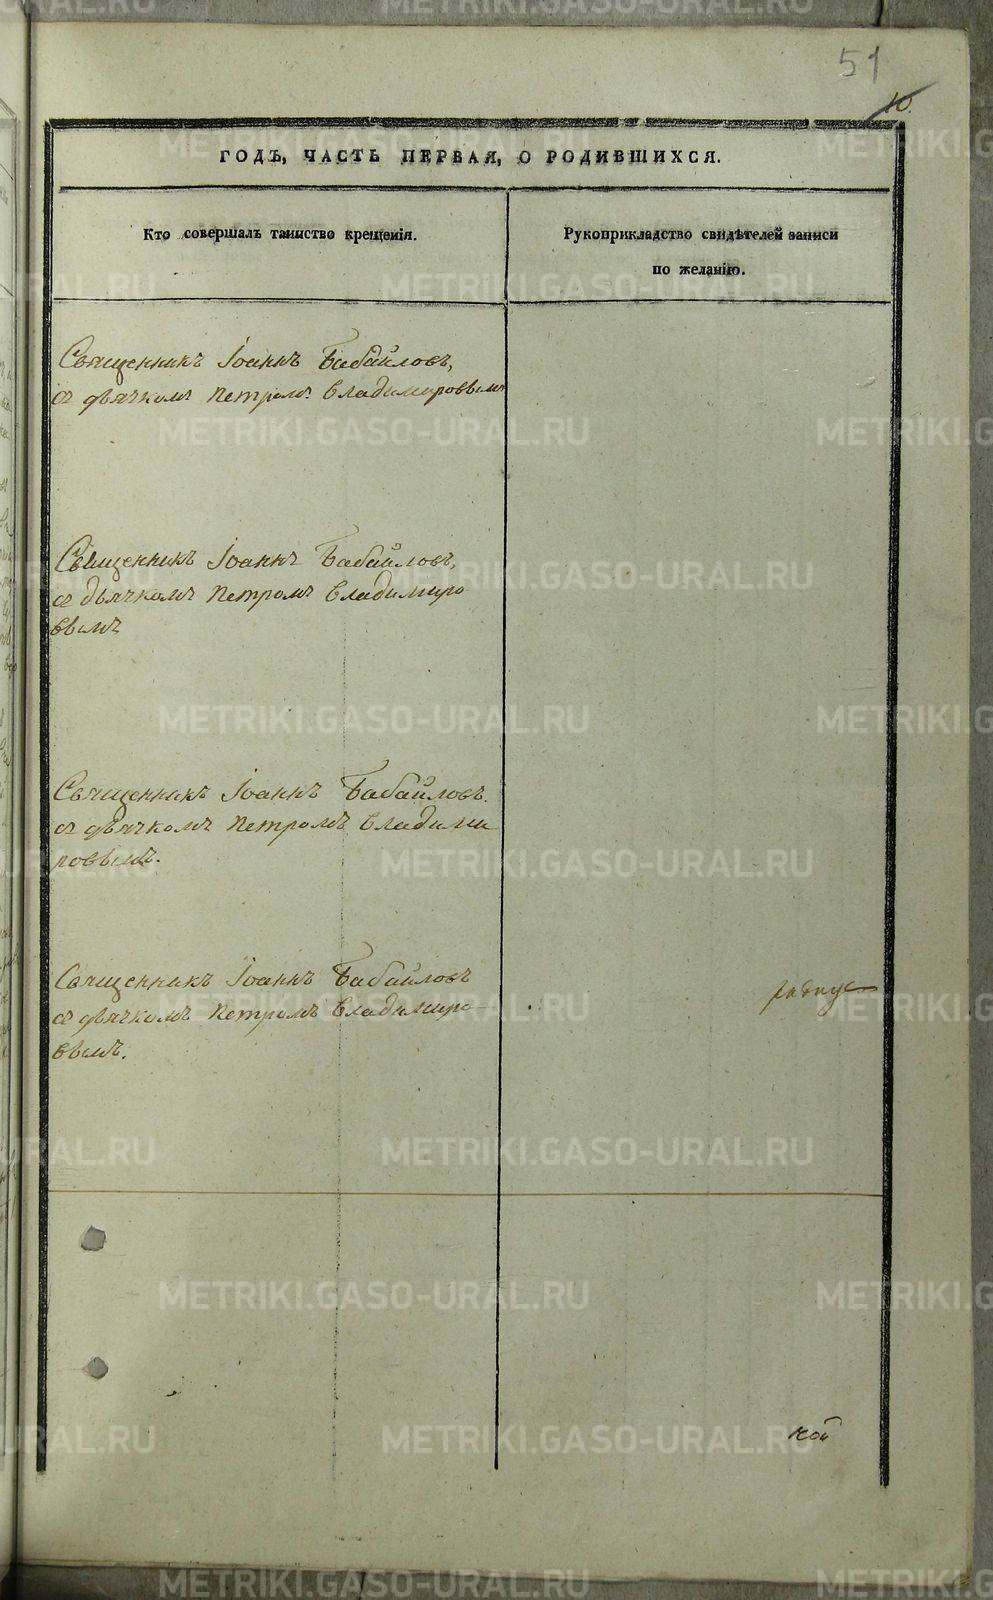 51
10
ГОДЪ, ЧАСТЬ ПЕРВАЯ, О РОДИВШИХСЯ.
Кто совершалъ таинство крещенія.
Рукоприкладство свидѣтелей записи
по желанію.
Священникъ Іоаннъ Бабайловъ,
съ дьячкомъ Петромъ Владимировымъ
Священникъ Іоаннъ Бабайловъ,
съ дьячкомъ Петромъ Владимиро
вымъ
Священникъ Іоаннъ Бабайловъ.
съ дьячкомъ Петромъ Владими
ровымъ.
Священникъ Іоаннъ Бабайловъ
съ дьячкомъ Петромъ Владимиро-
вымъ.
METRIKI.GASO-URAL.RU